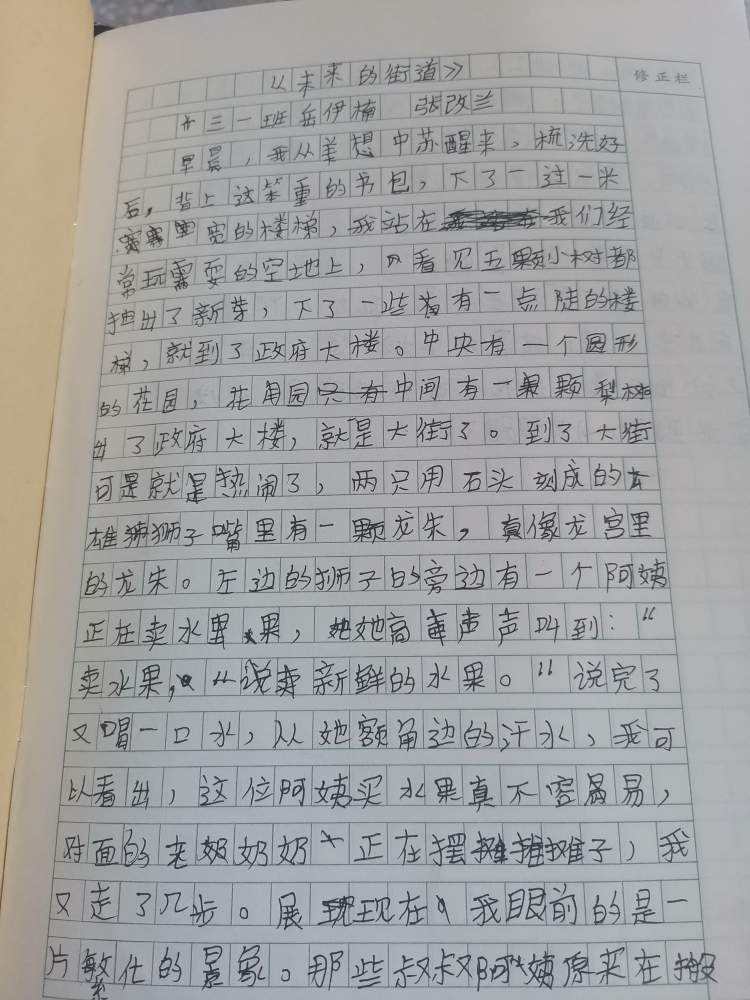 修正栏
《未来的街道》
十三一班岳伊楠 张改兰
早晨，我从美想中苏醒来，梳洗好
后，背上这笨重的书包，下了一过一米
宽的楼梯，我站在我们经
常玩需耍的空地上，看见五颗小树都
抽出了新芽，下了一些有一点陡的楼
梯，就到了政府大楼。中央有一个圆形
的花园，花园中间有一颗梨树
出了政府大楼，就是大街了。到了大街
可是就是热闹了，两只用石头刻成的
雄狮狮子嘴里有一颗龙朱，真像龙宫里
的龙朱。左边的狮子的旁边有一个阿姨
正在卖水果，她高声声叫到：“
卖水果，“说卖新鲜的水果。“说完了
又喝一口水，从她额角边的汗水，我可
以看出，这位阿姨买水果真不容易，
对面的老奶奶正在摆摊子，我
又走了几步。展现在我眼前的是一
片繁化的景象。那些叔叔阿姨原来在搬